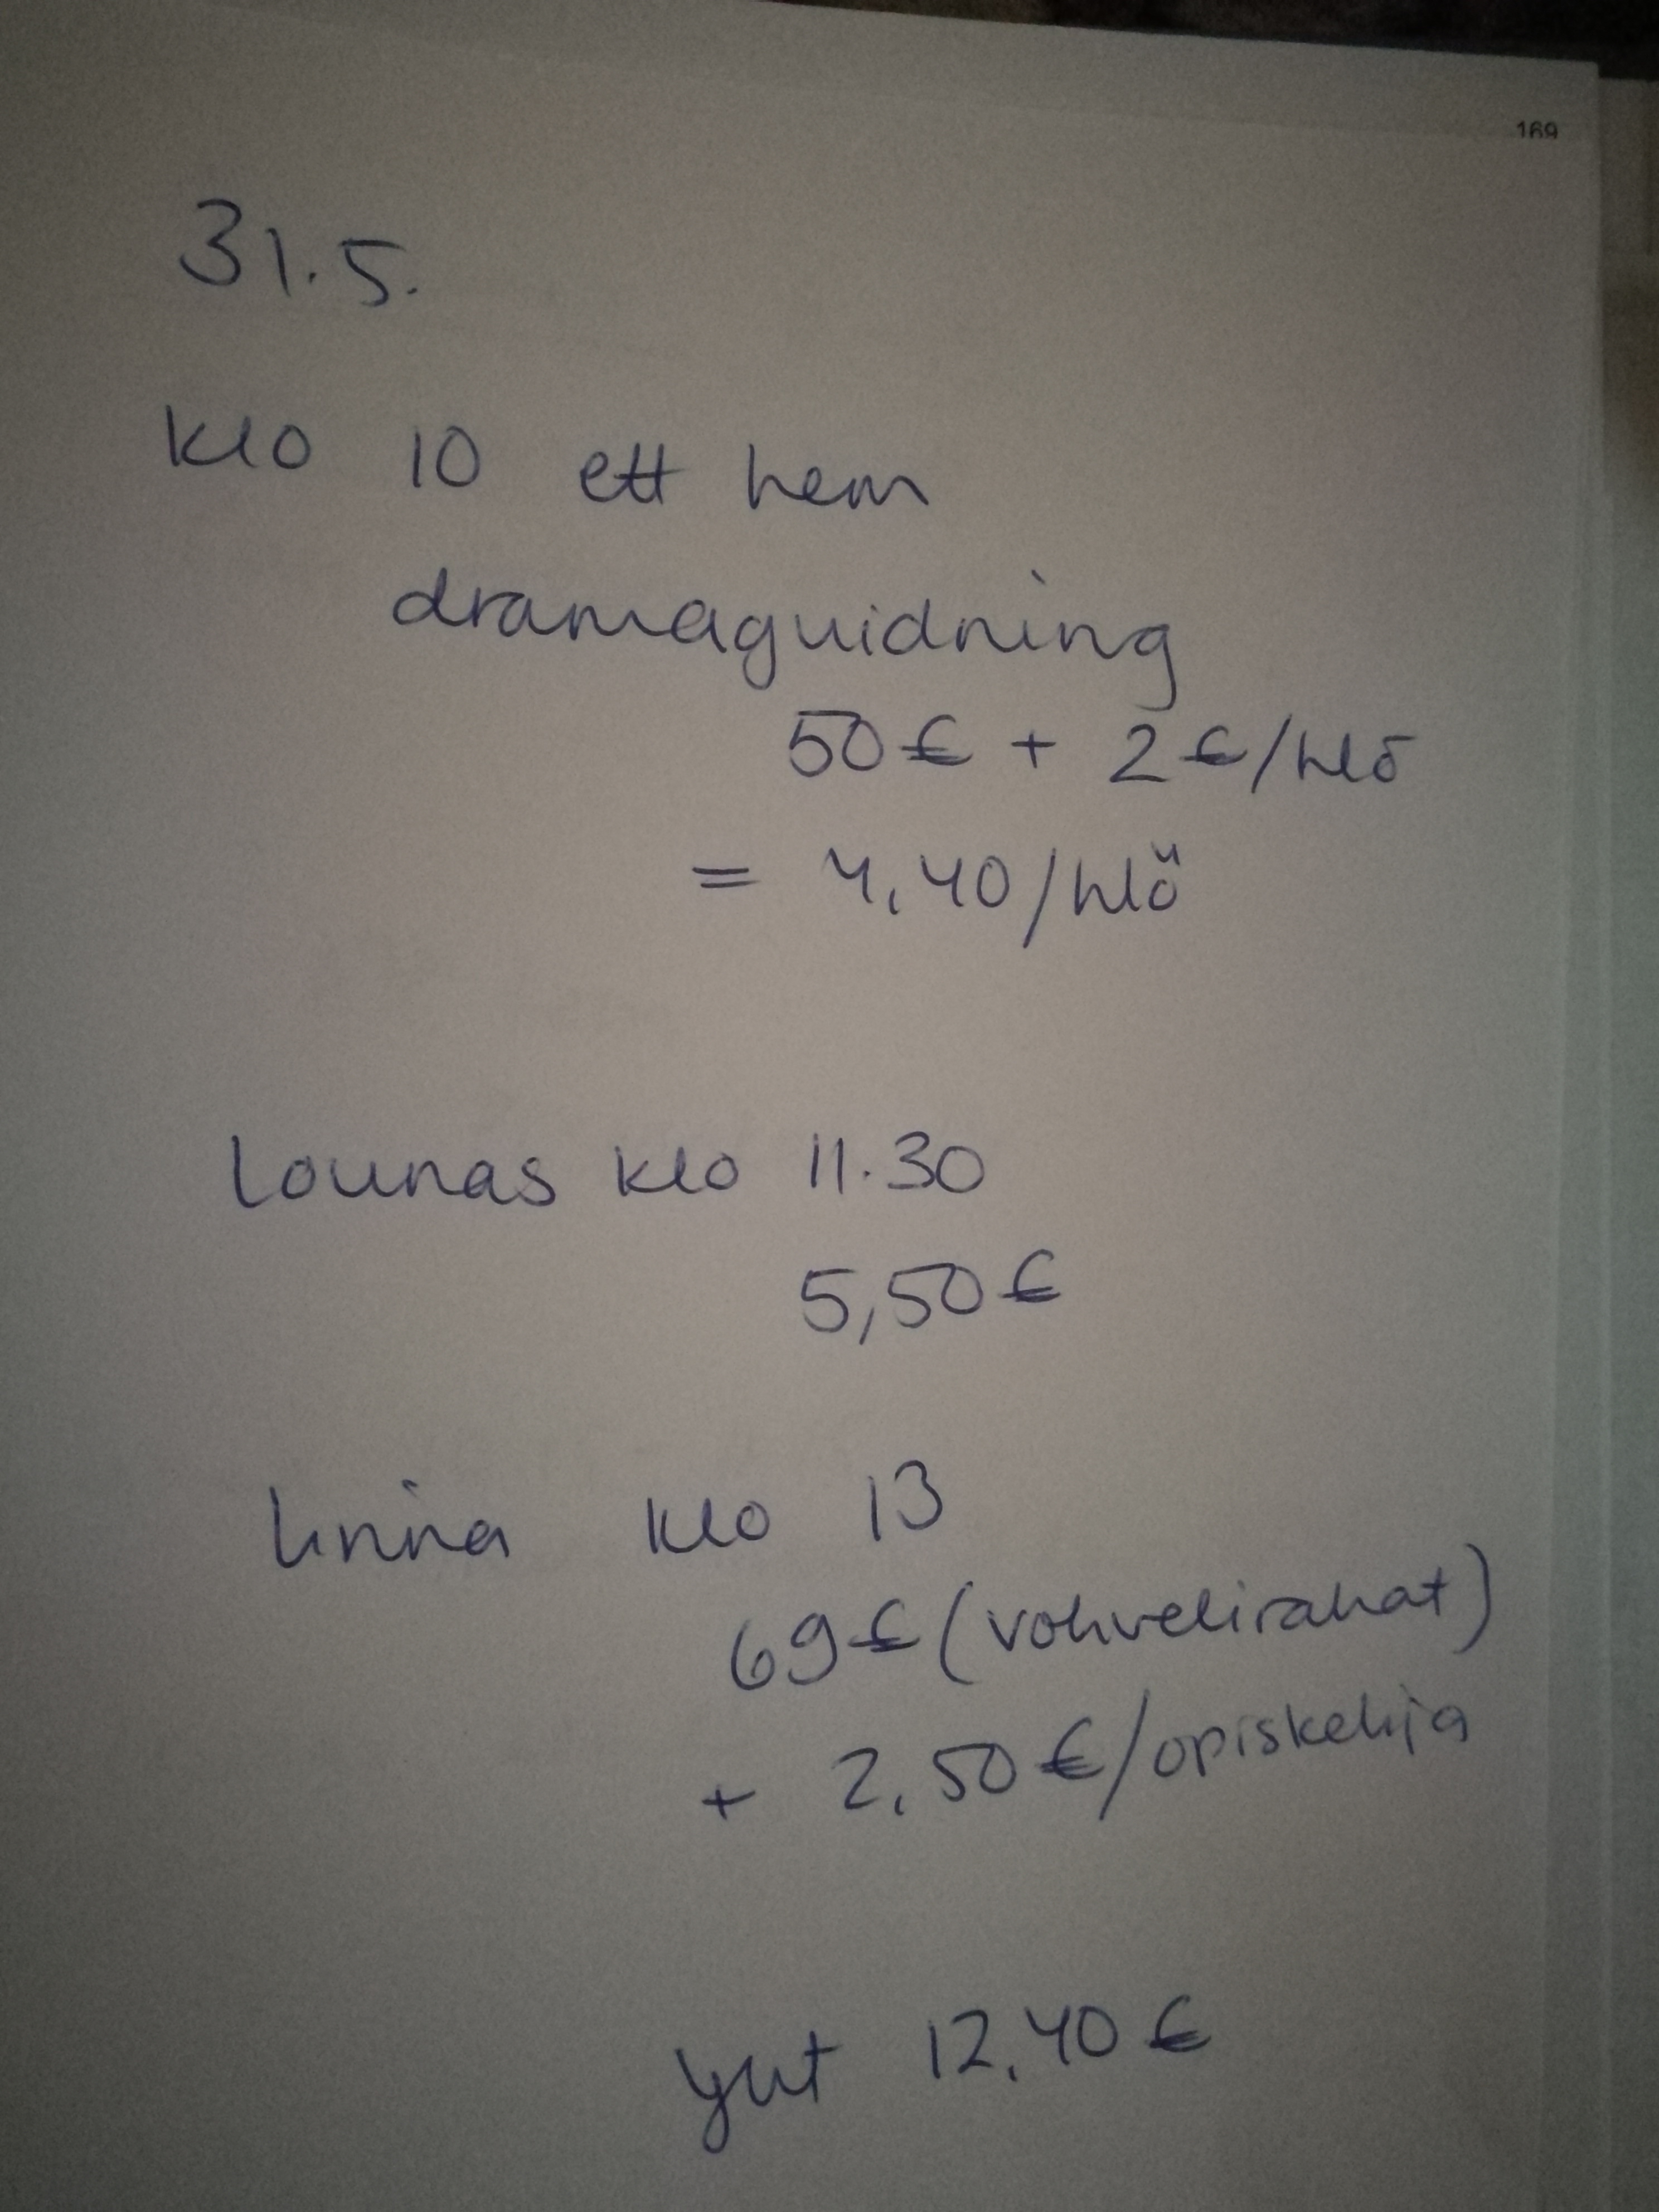 169
31.5.
klo 10 ett hem
dramaguidning
50€ + 2€/hlö
= 4,40/hlö
Lounas klo 11.30
5,50€
Linna klo 13
69€ (vohvelirahat)
+ 2,50€/opiskelija
yht 12,40€